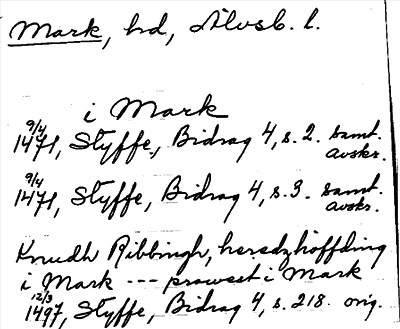 Mark, hd, Älvsb. l.
i Mark
9/4
1471, Styffe, Bidrag 4, s. 2. samt.
avskr.
9/4
1471, Styffe, Bidrag 4, s. 3. samt.
avskr.
Knudh Ribbingh, heredzhöffding
i Mark --- prowest i Mark
12/3
1497, Styffe, Bidrag 4, s. 218. orig.